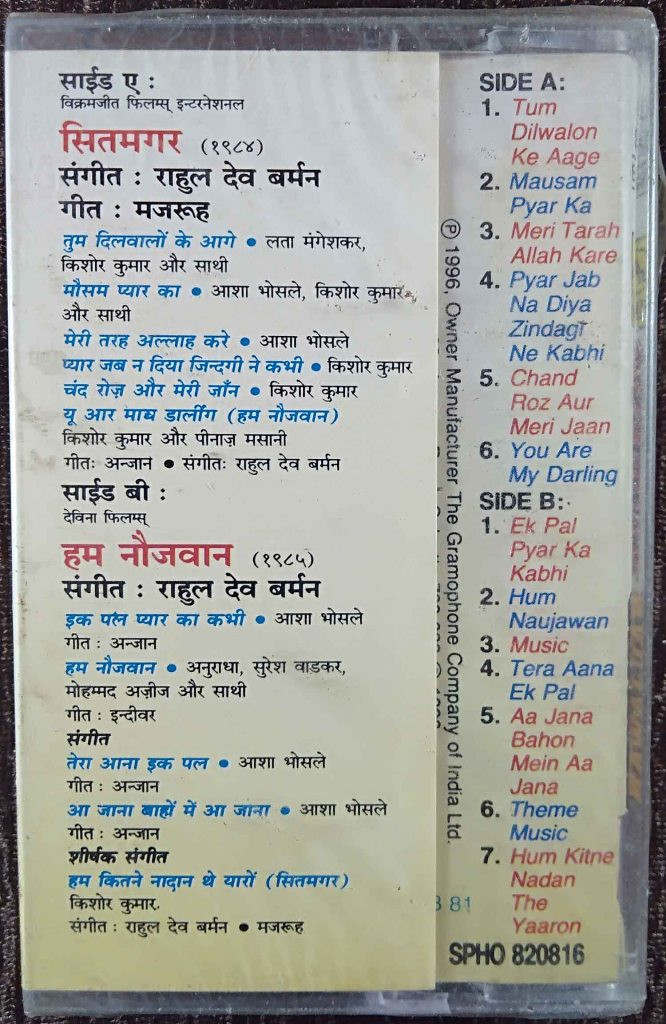 साईड ए :
विक्रमजीत फिलम्स् इन्टरनेशनल
सितमगर (१९८४)
संगीत : राहुल देव बर्मन
गीत : मजरूह
तुम दिलवालों के आगे • लता मंगेशकर,
किशोर कुमार और साथी
मौसम प्यार का • आशा भोसले, किशोर कुमार
और साथी
मेरी तरह अल्लाह करे • आशा भोसले
प्यार जब न दिया जिन्दगी ने कभी • किशोर कुमार
चंद रोज़ और मेरी जाँन • किशोर कुमार
यू आर माय डार्लींग (हम नौजवान)
किशोर कुमार और पीनाज़ मसानी
गीतः अन्जान • संगीतः राहुल देव बर्मन
साईड बी :
देविना फिलम्स्
हम नौजवान (१९८५)
संगीत : राहुल देव बर्मन
इक पल प्यार का कभी • आशा भोसले
गीत : अन्जान
हम नौजवान • अनुराधा, सुरेश वाडकर,
मोहम्मद अज़ीज और साथी
गीत : इन्दीवर
संगीत
तेरा आना इक पल • आशा भोसले
गीत : अन्जान
आ जाना बाहों में आ जाना • आशा भोसले
गीत : अन्जान
शीर्षक संगीत
हम कितने नादान थे यारों (सितमगर)
किशोर कुमार.
संगीत : राहुल देव बर्मन • मजरूह
Ⓟ 1996, Owner Manufacturer The Gramophone Company of India Ltd.
SIDE A:
1. Tum
Dilwalon
Ke Aage
2. Mausam
Pyar Ka
3. Meri Tarah
Allah Kare
4. Pyar Jab
Na Diya
Zindagi
Ne Kabhi
5. Chand
Roz Aur
Meri Jaan
6. You Are
My Darling
SIDE B:
1. Ek Pal
Pyar Ka
Kabhi
2. Hum
Naujawan
3. Music
4. Tera Aana
Ek Pal
5. Aa Jana
Bahon
Mein Aa
Jana
6. Theme
Music
7. Hum Kitne
Nadan
The
Yaaron
81
SPHO 820816